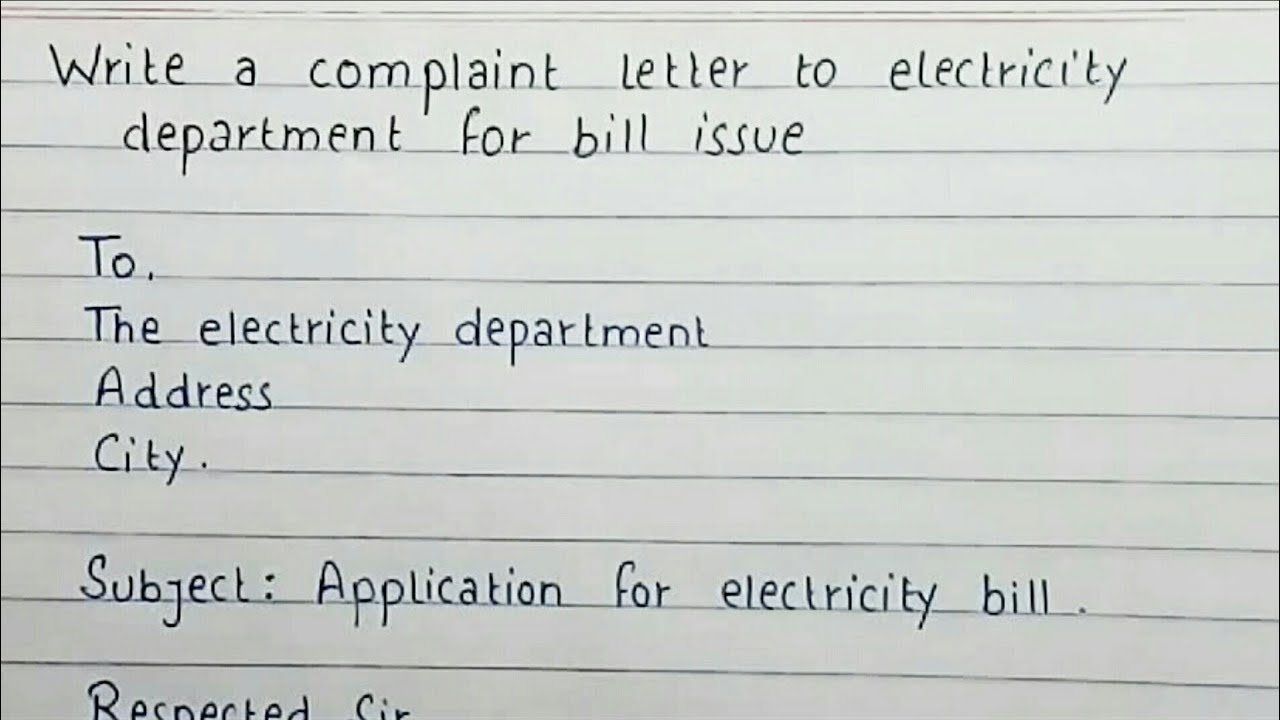 Write a complaint letter to electricity
department for bill issue
To,
The electricity department
Address
City.
Subject: Application for electricity bill.
Respected Sir